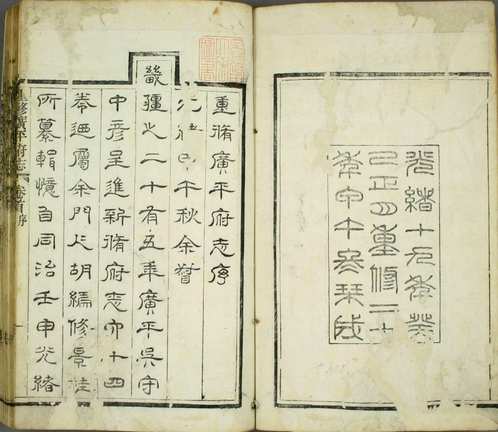 光緒十九年癸
巳正月重修二十
年甲午冬栞成
重脩廣平府志序
光緒甲午秋余督
畿疆之二十有五年廣平吳守
中彥呈進新脩府志六十四
卷迺屬余門人胡編修景桂
所纂輯憶自同治壬申光緒
重修廣平府志 卷首序